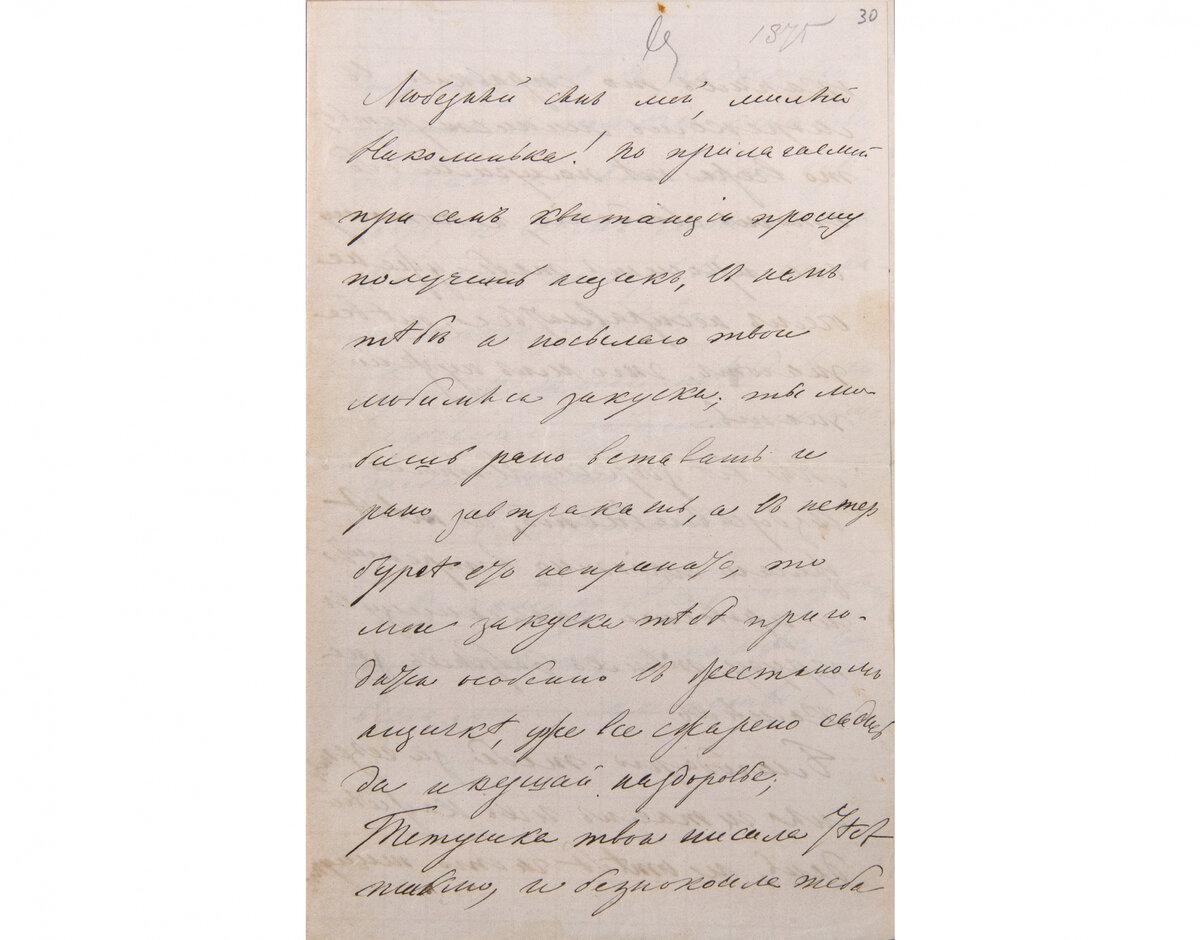 30
1875
Любезный сынъ мой, милый
Николинька! по прилагаемой
при семъ квитанціи прошу
получить ящикъ, въ немъ
тѣбѣ я посылаю твои
любимыя закуски; ты лю-
бишь рано вставать и
рано завтракать, а въ петер
бургѣ его
то
мои закуски тѣбѣ приго-
особено въ жестяномъ
ящичкѣ, уже все жарено садись
да и кушай наздоровье;
Тетушка твоя писала тѣбѣ
письмо, и безпокоила тебя